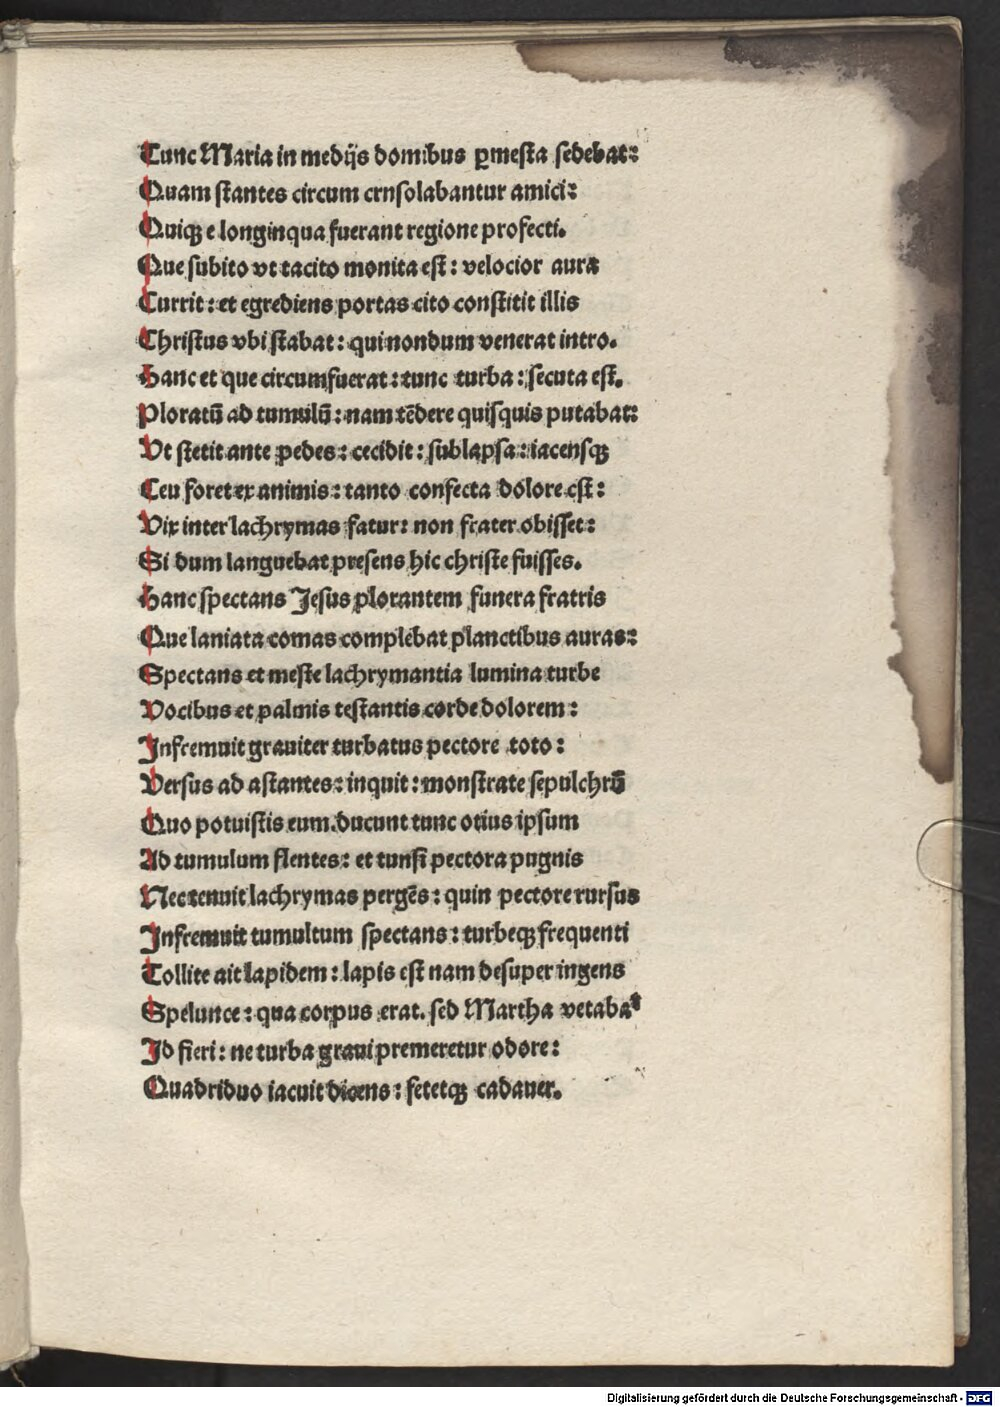 Tunc Maria in medijs domibus ꝑmesta sedebat:
Quam stantes circum crnsolabantur amici:
Quiqꝫ e longinqua fuerant regione profecti.
Que subito vt tacito monita est: velocior aura
Currit: et egrediens portas cito constitit illis
Christus vbi stabat: qui nondum venerat intro.
Hanc et que circumfuerat: tunc turba: secuta est.
Ploratū ad tumulū: nam tēdere quisquis putabat:
Vt stetit ante pedes: cecidit: sublapsa: iacensqꝫ
Ceu foret ex animis: tanto confecta dolore est:
Vix inter lachrymas fatur: non frater obisset:
Si dum languebat presens hic christe fuisses.
Hanc spectans Jesus plorantem funera fratris
Que laniata comas complebat planctibus auras:
Spectans et meste lachrymantia lumina turbe
Vocibus et palmis testantis corde dolorem:
Infremuit grauiter turbatus pectore toto:
Versus ad astantes: inquit: monstrate sepulchrū
Quo potuistis eum. ducunt tunc otius ipsum
Ad tumulum flentes: et tunsi pectora pugnis
Nec tenuit lachrymas pergēs: quin pectore rursus
Infremuit tumultum spectans: turbeqꝫ frequenti
Tollite ait lapidem: lapis est nam desuper ingens
Spelunce: qua corpus erat. sed Martha vetabaᵗ
Id fieri: ne turba graui premeretur odore:
Quadriduo iacuit dicens: fetetqꝫ cadauer.
Digitalisierung gefördert durch die Deutsche Forschungsgemeinschaft - DFG